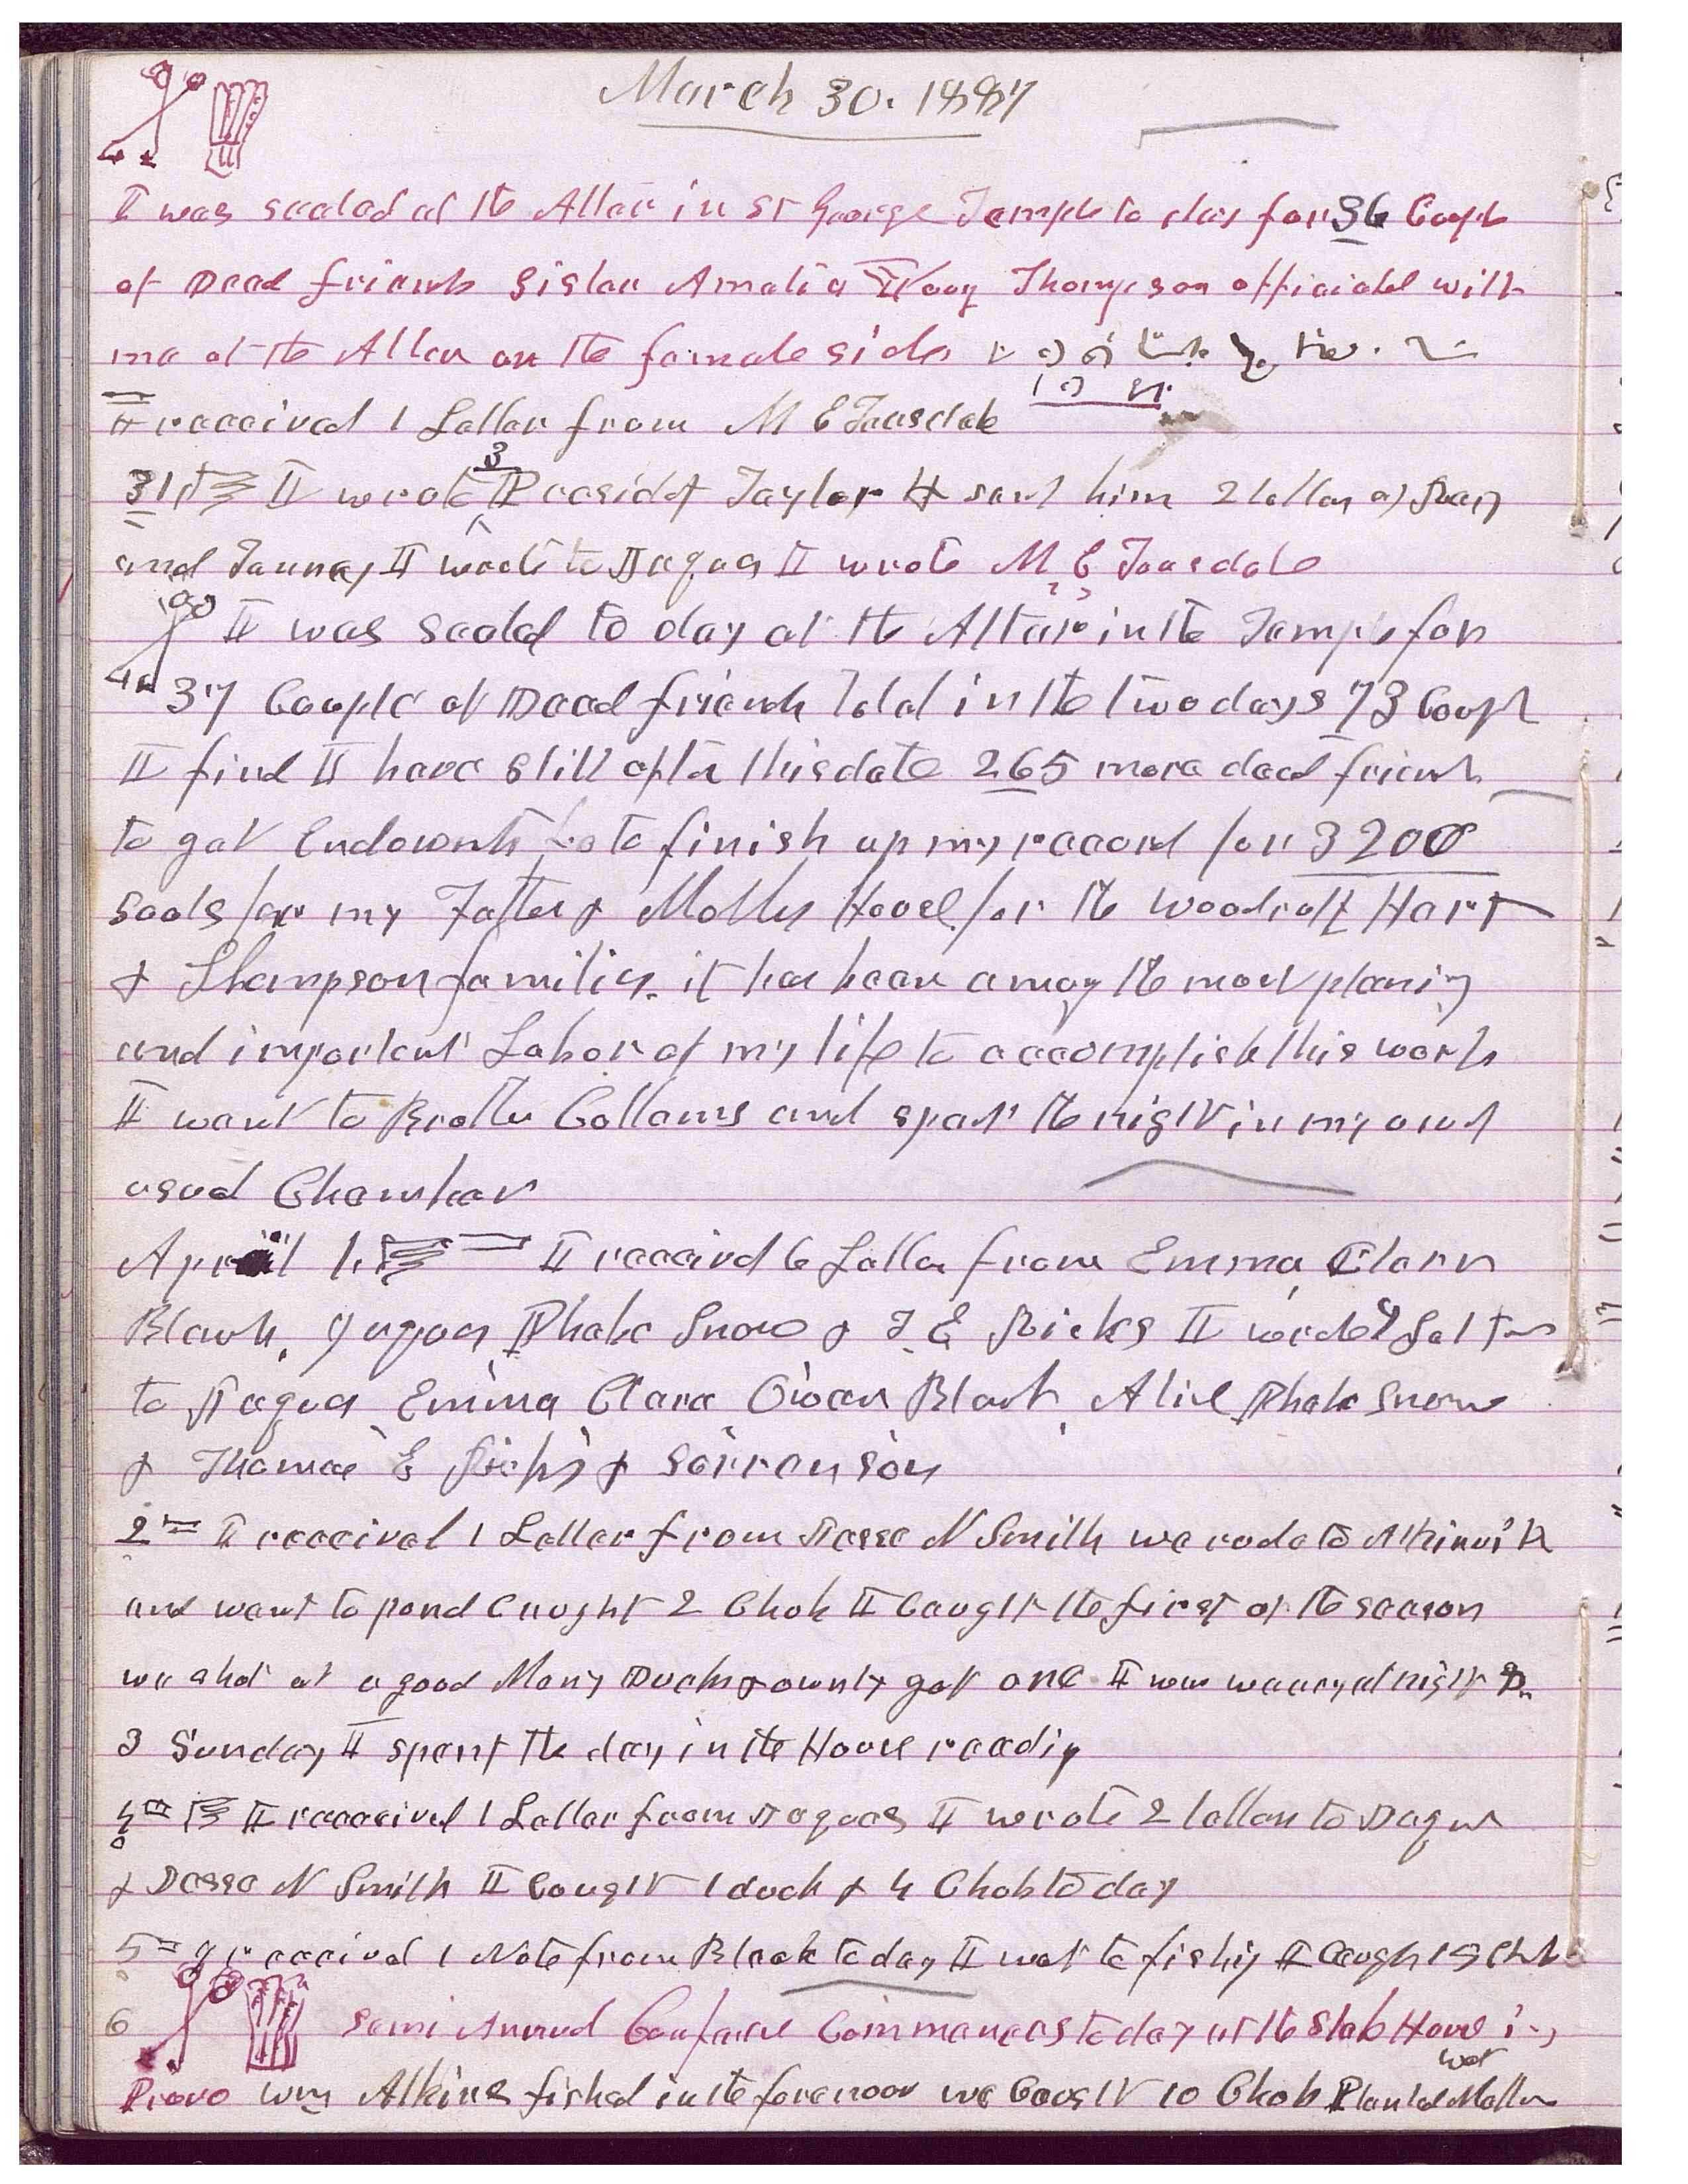 March 30. 1887
I was sealed at the Altar in St George Temple to day for 36 Coupl
of Dead friends Sister Amelia Young Thompson officiated with
me at the Altar on the female side
I received 1 Letter from M E Teasdale
31st I wrote 3 Presidet Taylor & sent him 2 letters of
and I wrote to Jaques I wrote M E Teasdale
I was sealed to day at the Altar in the Temple for
37 Couple of Dead friends Total in the two days 73 Coupl
I find I have still after this date 265 more dead friends
to get Endowmts to finish up my record for 3200
Souls for my Father & Mothers House for the Woodruff Hart
& Thompson families. it has been among the most plasing
and important Labor of my life to accomplish this work
I went to Brother Cottams and spent the night in my
usual Chamber
April 1st I receivd 6 Letter from Emma, Clara
Blanch, Jaques Phebe Snow & T E Ricks I wrote 9 Let
to Jaques Emma Clara Owen Blanch, Alice Phebe Snow
& Thomas E Ricks & Sorrenson
2nd I received 1 Letter from Jesse N Smith we rode to Atkinvill
and went to pond Caught 2 Chob I Caught the first of the season
we shot at a good Many Ducks & ownly got one. I was weary at night
3 Sunday I spent the day in the House readig
4th I received 1 Letter from Jaques I wrote 2 letters to Jaques
& Jesse N Smith I Caught 1 duck & 4 Chob to day
5th I received 1 Note from Bleak to day I wet to fishig I Caugh 15 Chb
6 Semi Annual Confrence Commences to day at the Stak House in
Provo Wm Atkins fished in the forenoon we Caught 10 Chob Planted